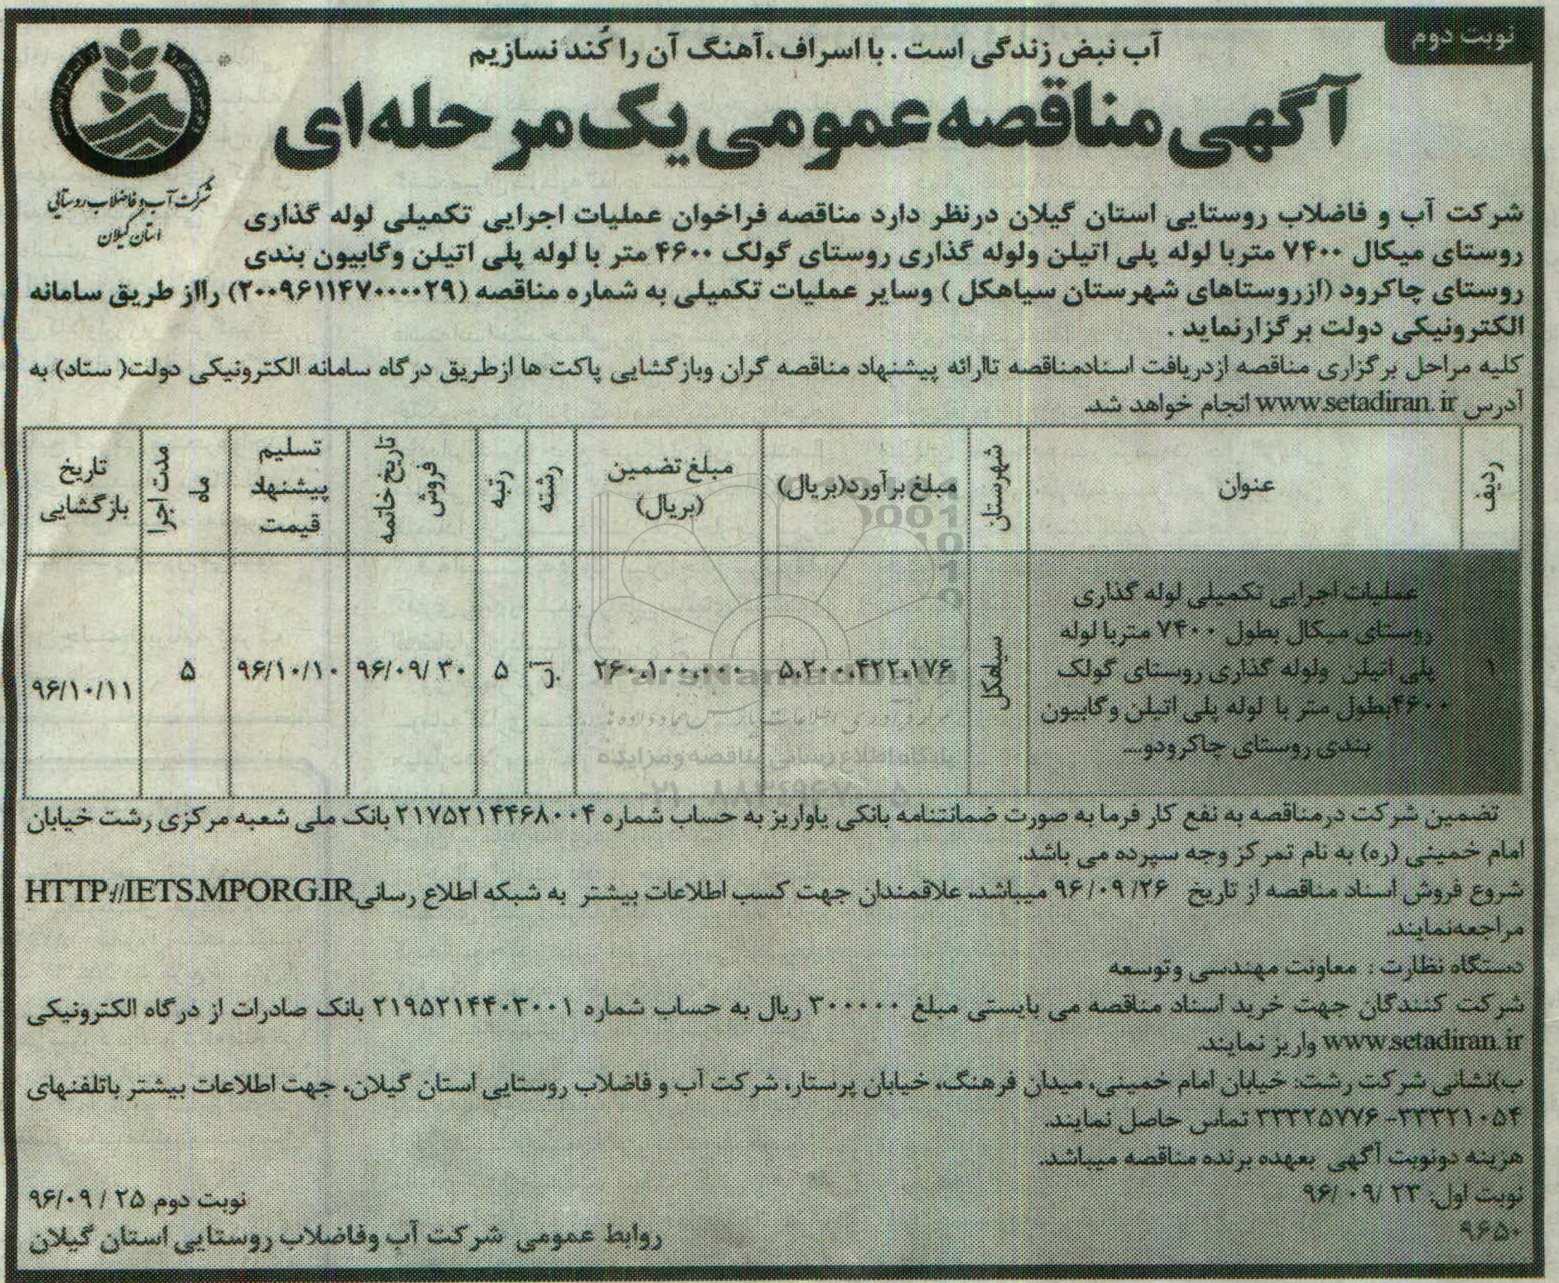 نوبت دوم
آب نبض زندگی است . با اسراف ،آهنگ آن را کُند نسازیم
آگهی مناقصه عمومی یک مرحله‌ای
شرکت آب و فاضلاب روستایی
استان گیلان
شرکت آب و فاضلاب روستایی استان گیلان درنظر دارد مناقصه فراخوان عملیات اجرایی تکمیلی لوله گذاری
روستای میکال ۷۴۰۰ متربا لوله پلی اتیلن ولوله گذاری روستای گولک ۴۶۰۰ متر با لوله پلی اتیلن وگابیون بندی
روستای چاکرود (ازروستاهای شهرستان سیاهکل ) وسایر عملیات تکمیلی به شماره مناقصه (۲۰۰۹۶۱۱۴۷۰۰۰۰۲۹) رااز طریق سامانه
الکترونیکی دولت برگزارنماید .
کلیه مراحل برگزاری مناقصه ازدریافت اسنادمناقصه تاارائه پیشنهاد مناقصه گران وبازگشایی پاکت ها ازطریق درگاه سامانه الکترونیکی دولت( ستاد) به
آدرس www.setadiran.ir انجام خواهد شد.
ردیف
عنوان
شهرستان
مبلغ برآورد(بریال)
مبلغ تضمین
(بریال)
رشته
رتبه
تاریخ خاتمه
فروش
تسلیم
پیشنهاد
قیمت
مدت اجرا
ماه
تاریخ
بازگشایی
۱
عملیات اجرایی تکمیلی لوله گذاری
روستای میکال بطول ۷۴۰۰ متربا لوله
پلی اتیلن ولوله گذاری روستای گولک
۴۶۰۰بطول متر با لوله پلی اتیلن وگابیون
بندی روستای چاکرودو...
سیاهکل
۵،۲۰۰،۴۲۲،۱۷۶
۲۶۰،۱۰۰،۰۰۰
آب
۵
۹۶/۰۹/ ۳۰
۹۶/۱۰/۱۰
۵
۹۶/۱۰/۱۱
پایگاه اطلاع رسانی مناقصه و مزایده
تضمین شرکت درمناقصه به نفع کار فرما به صورت ضمانتنامه بانکی یاواریز به حساب شماره ۲۱۷۵۲۱۴۴۶۸۰۰۴ بانک ملی شعبه مرکزی رشت خیابان
امام خمینی (ره) به نام تمرکز وجه سپرده می باشد.
شروع فروش اسناد مناقصه از تاریخ ۹۶/۰۹/۲۶ میباشد، علاقمندان جهت کسب اطلاعات بیشتر به شبکه اطلاع رسانی HTTP://IETS.MPORG.IR
مراجعه‌نمایند.
دستگاه نظارت : معاونت مهندسی وتوسعه
شرکت کنندگان جهت خرید اسناد مناقصه می بایستی مبلغ ۳۰۰۰۰۰ ریال به حساب شماره ۲۱۹۵۲۱۴۴۰۳۰۰۱ بانک صادرات از درگاه الکترونیکی
www.setadiran.ir واریز نمایند.
ب)نشانی شرکت رشت: خیابان امام خمینی، میدان فرهنگ، خیابان پرستار، شرکت آب و فاضلاب روستایی استان گیلان، جهت اطلاعات بیشتر باتلفنهای
۳۳۳۲۱۰۵۴- ۳۳۳۲۵۷۷۶ تماس حاصل نمایند.
هزینه دونوبت آگهی بعهده برنده مناقصه میباشد.
نوبت اول: ۲۳ /۰۹ /۹۶
نوبت دوم ۲۵ / ۹۶/۰۹
۹۶۵۰
روابط عمومی شرکت آب وفاضلاب روستایی استان گیلان